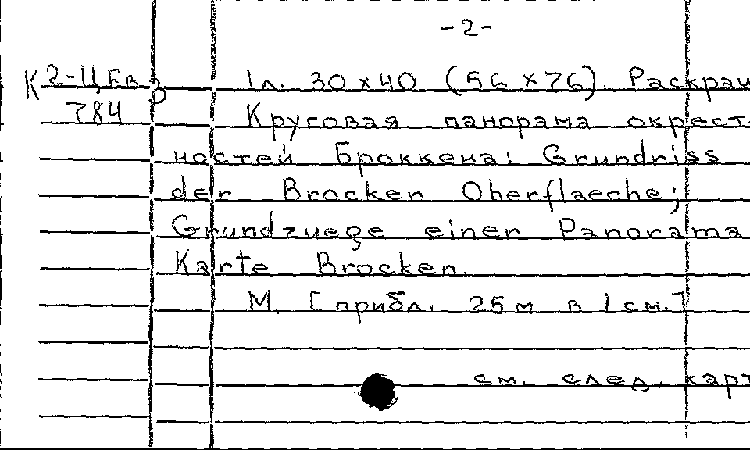 -2-
К 2-Ц Ев 3
784 р
1л. 30×40 (56×76). Раскраш
Круговая панорама окрест-
ностей Броккена: Grundriss
der Brocken Oberflaeche;
Grundzuege einer Panorama
Karte Brocken.
М. [прибл. 25м в 1см.]
см. след. карт